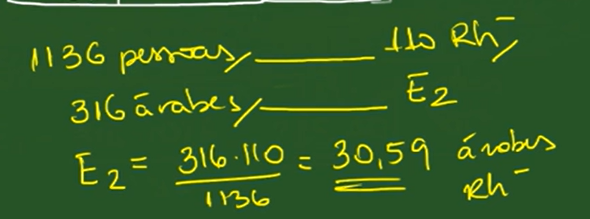 1136 pessoas ______ 110 Rh⁻
316 árabes ______ E₂
E₂ = 316·110 / 1136 = 30,59 árabes Rh⁻